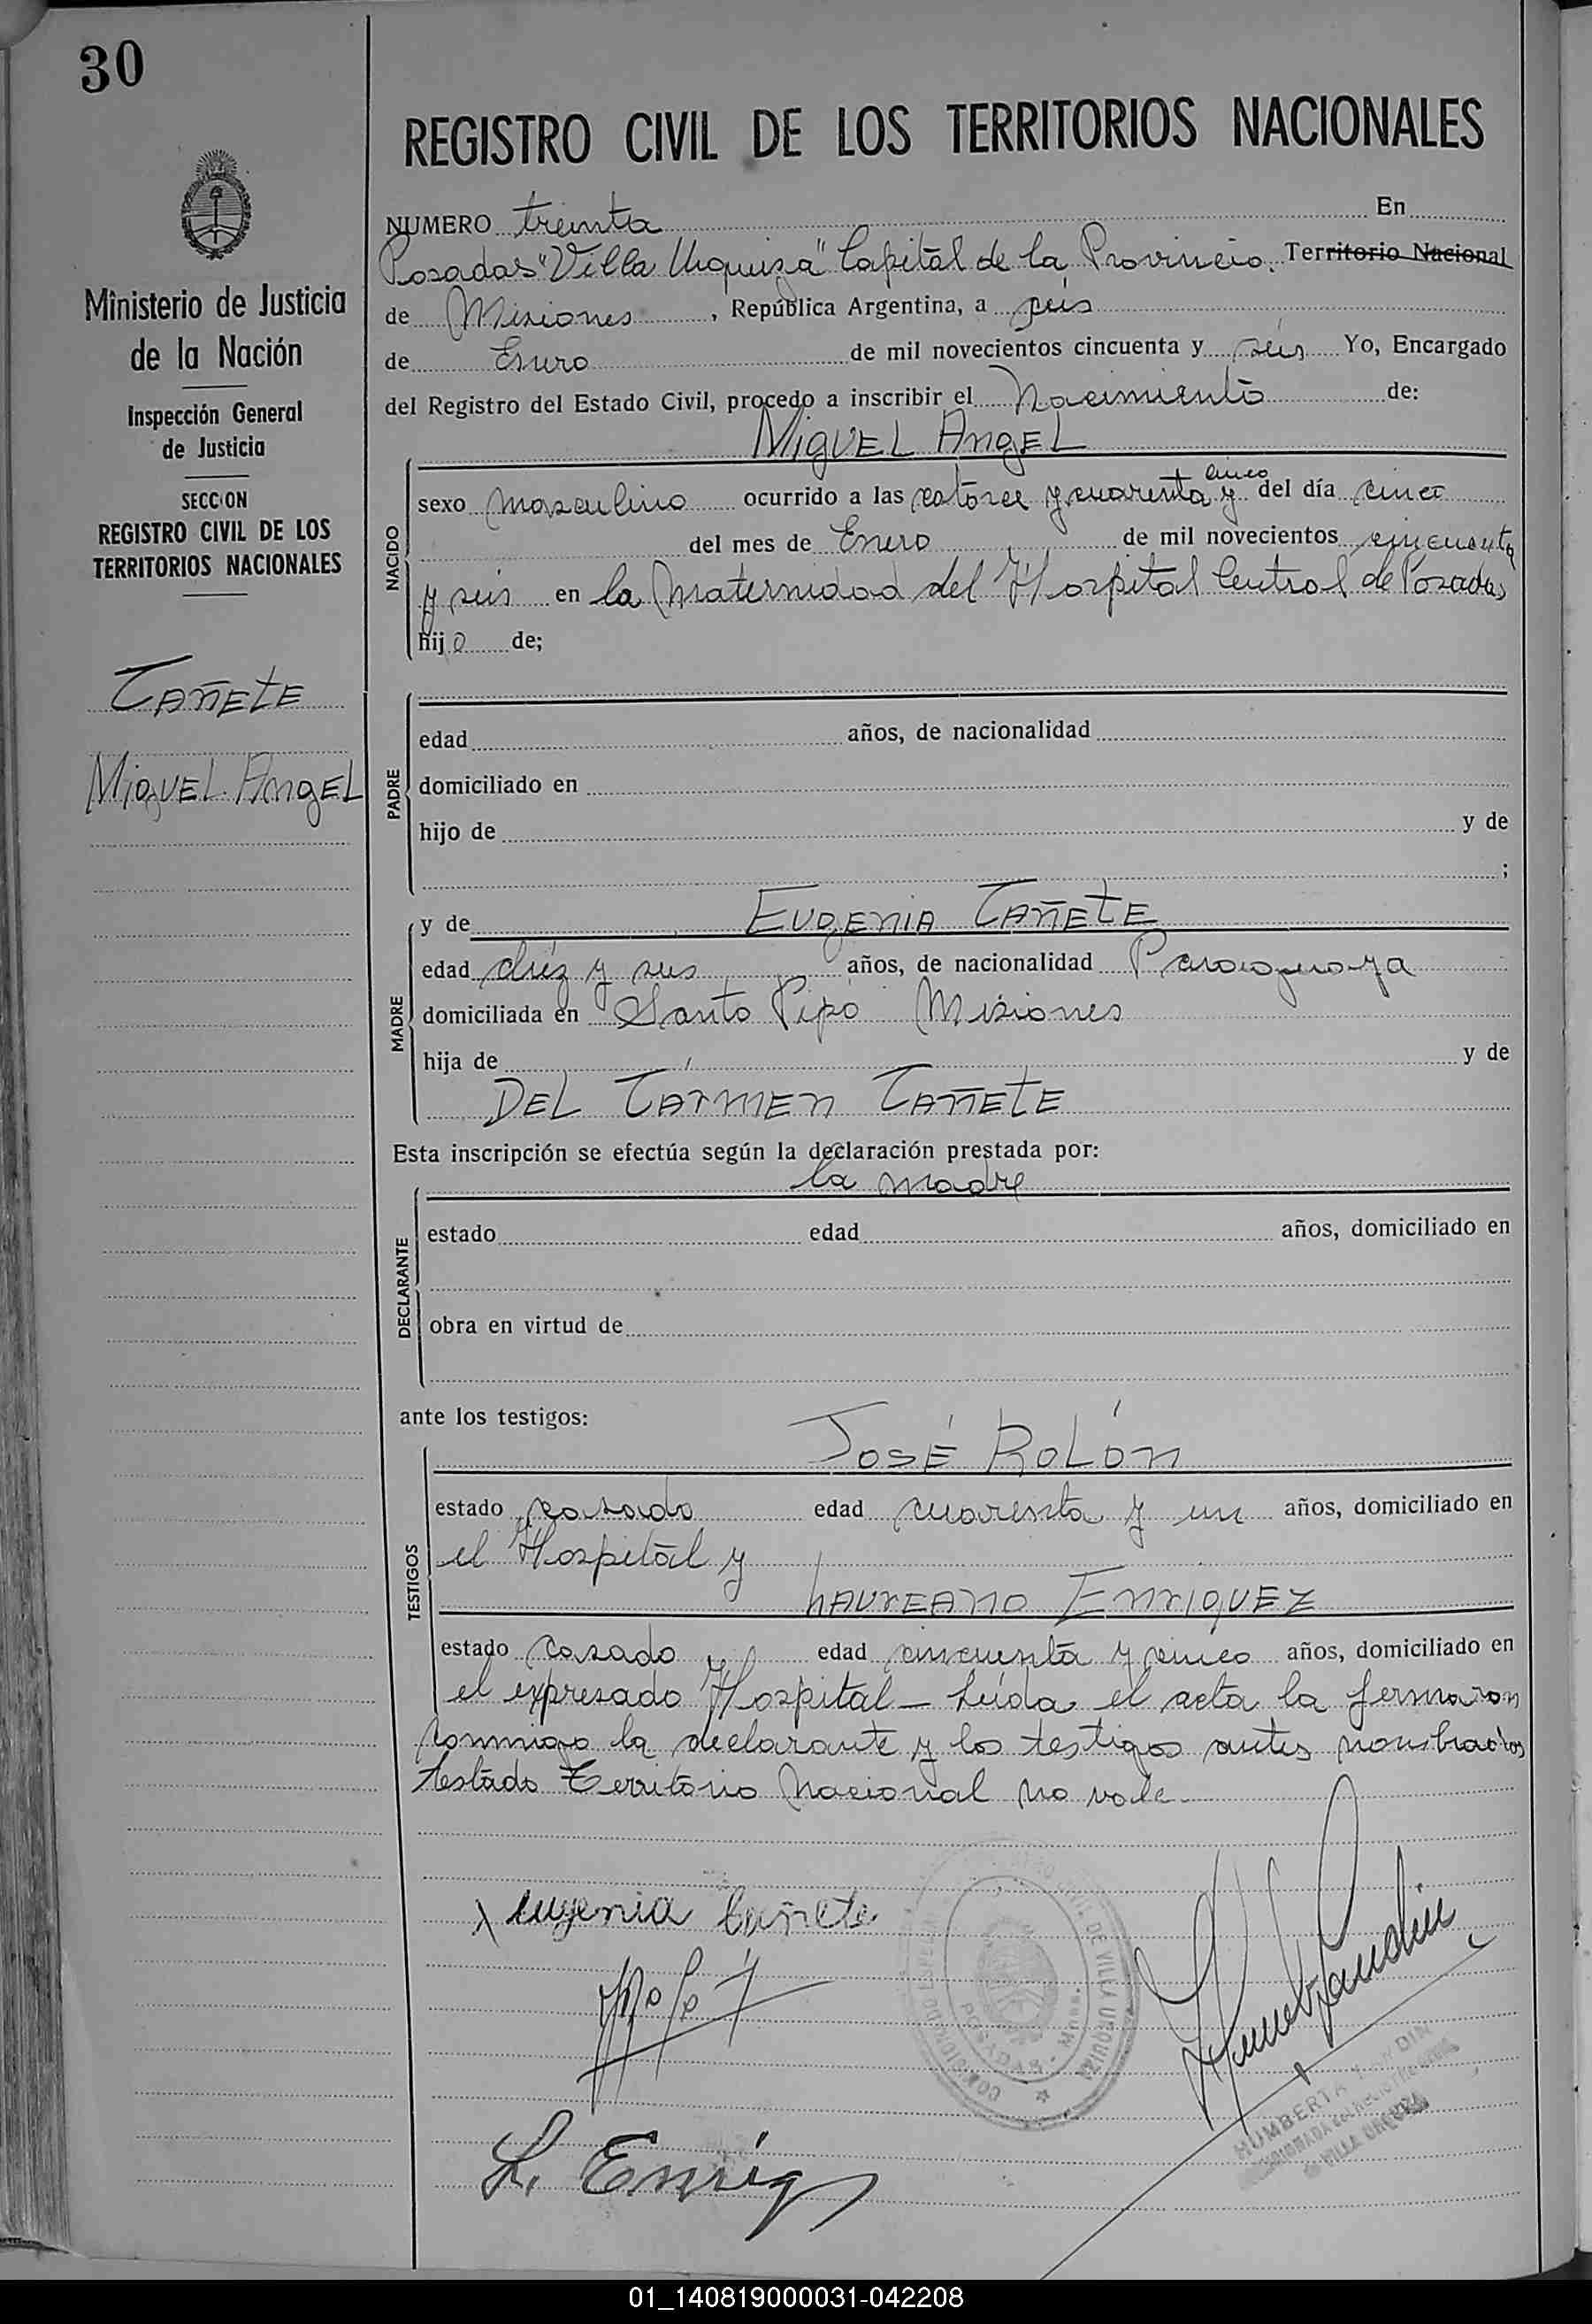 30
REGISTRO CIVIL DE LOS TERRITORIOS NACIONALES
NUMERO treinta En
Posadas "Villa Urquiza" Capital de la Provincia. Territorio Nacional
de Misiones, República Argentina, a seis
de Enero de mil novecientos cincuenta y seis Yo, Encargado
del Registro del Estado Civil, procedo a inscribir el Nacimiento de:
MIGUEL ANGEL
NACIDO
sexo masculino ocurrido a las catorce y cuarenta y cinco del día cinco
del mes de Enero de mil novecientos cincuenta
y seis en la Maternidad del Hospital Central de Posadas
hijo de;
PADRE
edad años, de nacionalidad
domiciliado en
hijo de y de
;
MADRE
y de EUGENIA CAÑETE
edad diez y seis años, de nacionalidad Paraguaya
domiciliada en Santo Pipó Misiones
hija de y de
DEL CÁRMEN CAÑETE
Esta inscripción se efectúa según la declaración prestada por:
la madre
DECLARANTE
estado edad años, domiciliado en
obra en virtud de
ante los testigos:
JOSÉ ROLÓN
TESTIGOS
estado casado edad cuarenta y un años, domiciliado en
el Hospital y
LAUREANO ENRIQUEZ
estado casado y edad cincuenta y cinco años, domiciliado en
el expresado Hospital — Leída el acta la firmaron
conmigo la declarante y los testigos antes nombrados
testado Territorio Nacional no vale.
Ministerio de Justicia
de la Nación
Inspección General
de Justicia
SECCION
REGISTRO CIVIL DE LOS
TERRITORIOS NACIONALES
CAÑETE
MIGUEL ANGEL
x Eugenia Cañete
L. Enriq
DE VILLA URQUIZA
POSADAS - Mnes.
HUMBERTA
VILLA URQUIZA
01_140819000031-042208